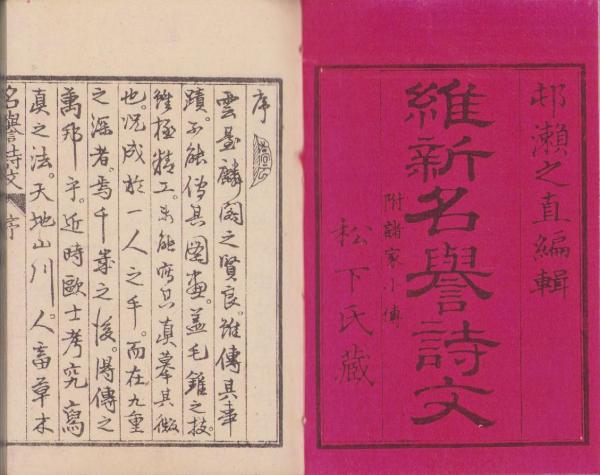 邨瀬之直編輯
維新名譽詩文
附諸家小傳
松下氏藏
序
雲臺麟閣之賢良。雖傳其事
蹟。不能其圖畫。蓋毛錐之技。
雖極精工。未能寫其真摹其微
也。况成於一人之手。而在九重
之深者。焉千歲之後。得傳之
萬邦乎。近時歐士考究寫
真之法。天地山川。人畜草木
名譽詩文 序